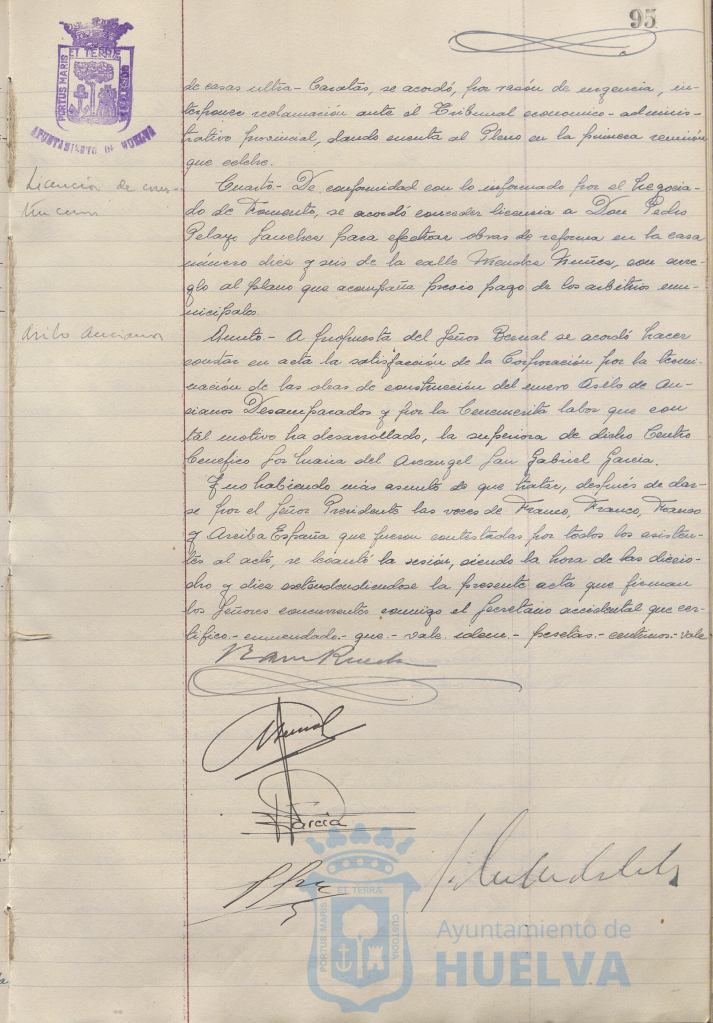 95
PORTUS MARIS ET TERRÆ CUSTODIA
AYUNTAMIENTO DE HUELVA
de casas ultra-baratas, se acordó, por razón de urgencia, in-
terponer reclamación ante el Tribunal economico-adminis-
trativo provincial, dando cuenta al Pleno en la primera reunión
que celebre.
Licencia de cons-
truccion
Cuarto.- De conformidad con lo informado por el Negocia-
do de Fomento, se acordó conceder licencia a Don Pedro
Pelayo Sanchez para efectuar obras de reforma en la casa
número diez y seis de la calle Mendez Nuñez, con arre-
glo al plano que acompaña previo pago de los arbitrios mu-
nicipales.
Asilo Ancianos
Quinto.- A propuesta del Señor Bernal se acordó hacer
constar en acta la satisfacción de la Corporación por la termi-
nación de las obras de construcción del nuevo Asilo de An-
cianos Desamparados y por la benemerita labor que con
tal motivo ha desarrollado, la superiora de dicho Centro
benefico Sor Maria del Arcangel San Gabriel Garcia.
Y no habiendo más asunto de que tratar, después de dar-
se por el Señor Presidente las voces de Franco, Franco, Franco
y Arriba España que fueron contestadas por todos los asisten-
tes al acto, se levantó la sesión, siendo la hora de las diecio-
cho y diez extendiendiendose la presente acta que firman
los Señores concurrentes conmigo el Secretario accidental que cer-
tifico.- enmendado.- que.- vale. idem.- pesetas.- centimos.- vale
Bernal
Garcia
PORTUS MARIS ET TERRÆ CUSTODIA
Ayuntamiento de
HUELVA